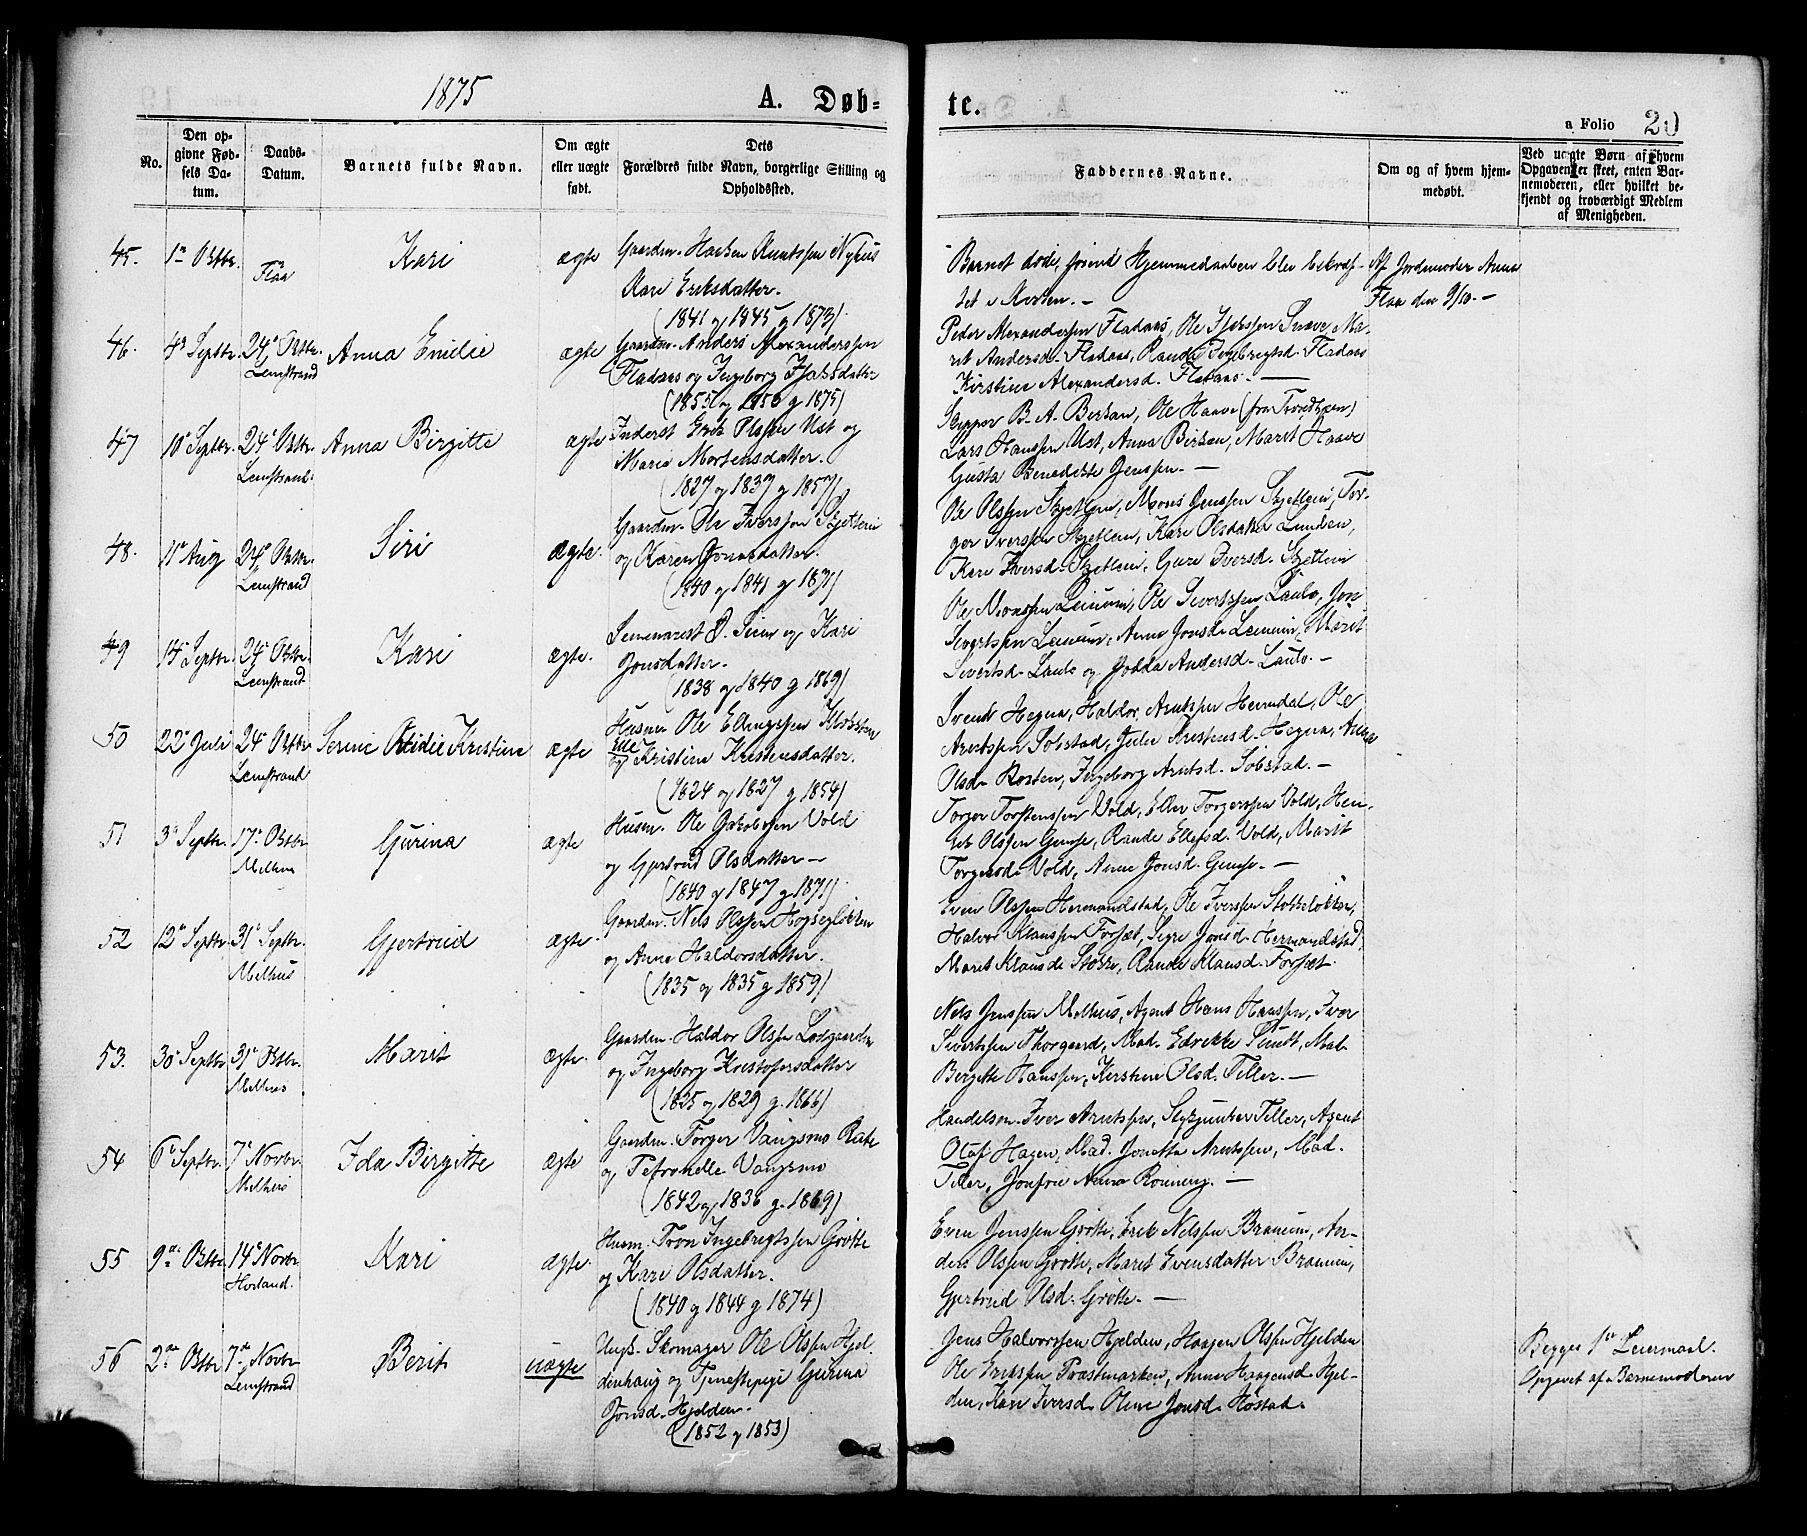 1875
A. Døb-
te.
a Folio 20
No.
Den op-
givne Fød-
sels Da-
tum.
Daabs-
Datum.
Barnets fulde Navn.
Om ægte
eller uægte
født.
Dets
Forældres fulde Navn, borgerlige Stilling og
Opholdssted.
Faddernes Navne.
Om og af hvem hjem-
medøbt.
Ved uægte Børn af hvem
Opgaven er skeet, enten Bar-
nemoderen, eller hvilket be-
kjendt og troværdigt Medlem
af Menigheden.
45. 1ste Oktbr. Flaa Kari ægte
Gaardm. Haaken Knutssen Nyhus
Kari Eriksdatter.
(1841 og 1845 g 1873)
Barnet døde, forend Hjemmedaaben blev bekræf-
tet i Kirken. —
Af Jordemoder Anna
Flaa den 9/10. —
46. 4de Septbr. 24de Oktbr. Lenstrand Anna Emilie ægte
Gaardm. Anders Alexanderssen
Fladaas og Ingeborg
(1855 og 1850 g 1875)
Peder Alexanderssen Fladaas, Ole Snøve, Ma-
rit Andersd. Fladaas, Randi Ingebrigtsd. Fladaas
Kirstine Alexandersd. Fladaas. —
47 10de Septbr. 24de Oktbr. Lenstrand. Anna Birgitte ægte
Inderst Erik Olssen Ust og
Marie Mortensdatter.
(1827 og 1837 g 1857)
Skipper B. A. Berhan, Ole Haave (fra Trondhjem)
Lars Hanssen Ust, Anna Berhan, Marit Haave
Gusta Benedikte Jenssen. —
48. 11te Aug 24de Oktbr. Lenstrand Siri ægte.
Gaardm. Ole Iverssen Skjetlein
og Karen Jonasdatter.
(1840 og 1841 g 1871)
Ole Olssen Skjetlein, Mons Jenssen Skjetlein, Tor-
ger Iverssen Skjetlein, Kari Olsdatter Lunden,
Kari Iversd. Skjetlein, Guru Iversd. Skjetlein
49 14de Septbr. 24de Oktbr. Lenstrand Kari ægte.
Seminarist O. Leinum og Kari
Jonsdatter.
(1838 og 1840 g 1869)
Ole Monssen Leinum, Ole Sivertssen Laulo, Jon
Sivertssen Leinum, Anne Jonsd. Leinum, Marit
Sivertsd. Laulo og Jodda Andersd. Laulo. —
50 22de Juli 24de Oktbr. Lenstrand Serine Otidie Kristine ægte
Husm. Ole Ellingssen
og Kristine Kristensdatter.
(1824 og 1827 g 1854)
Svend Hegna, Haldor Arntssen Heimdal, Ole
Arntssen Sobstad, Julie Kristensd. Hegna, Anne
Olsd. Rosten, Ingeborg Arntsd. Sobstad. —
51 3de Septbr. 17de Oktbr. Melhus Gjurina ægte
Husm. Ole Jakobssen Vold
og Gjertrud Olsdatter —
(1840 og 1847 g. 1871)
Torger Torstenssen Vold, Ellev Torgerssen Vold, Hen-
rik Olssen Gimse, Randi Ellefsd. Vold, Marit
Torgersd. Vold, Anne Jonsd. Gimse. —
52 12te Septbr. 31te Septbr. Melhus Gjertrud ægte.
Gaardm. Nels Olssen Høgsegløkken
og Anne Haldorsdatter.
(1835 og 1835 g 1859)
Even Olssen Hermandstad, Ole Iverssen Stokkeløkken,
Halvor Klaussen Forsæt, Sigri Jonsd. Hermandstad
Marit Klausd. Stokke, Randi Klausd. Forsæt.
53. 30te Septbr 31te Oktbr. Melhus Marit ægte.
Gaardm. Haldor Olssen Loegaarden
og Ingeborg Kristofersdatter
(1825 og 1829 g. 1866)
Nels Jenssen Melhus, Agent Hans Hanssen, Ivar
Sivertssen Thorgaard, Mad. Edrikke Sundt, Mad.
Bergitte Hanssen, Kerstine Olsd. Teller. —
54 6te Septbr. 7de Novbr. Melhus Ida Birgitte ægte
Gaardm. Torger Vangsmo
og Petronelle Vangsmo
(1842 og 1836 g. 1869)
Handelsm. Iver Arntssen, Styrjunker Teller, Agent
Olaf Hagen, Mad. Jonetta Arntssen, Mad.
Teller, Jomfru Anna Rønning. —
55 9de Oktbr 14de Novbr Hovland. Kari ægte.
Husm. Tron Ingebrigtssen Grøtte
og Kari Olsdatter.
(1840 og 1844 g 1874)
Even Jenssen Grøtte, Erik Nelssen Braneim, An-
ders Olssen Grøtte, Marit Evensdatter Braneim,
Gjertrud Olsd. Grøtte. —
56 2den Oktbr 7de Novbr Lenstrand Berit uægte
Ungk. Skomager Ole Olssen Hjel-
denhaug og Tjenestepige Gjurina
Jonsd. Hjelden.
(1852 og 1853)
Jens Halvorssen Hjelden, Haagen Olssen Hjelden
Ole Erikssen Præstmarken, Anne Haagensd. Hjel-
den, Kari Iversd. Oline Jonsd. Hostad.
Begges 1ste Leiermaal.
Opgivet af Barnemoderen